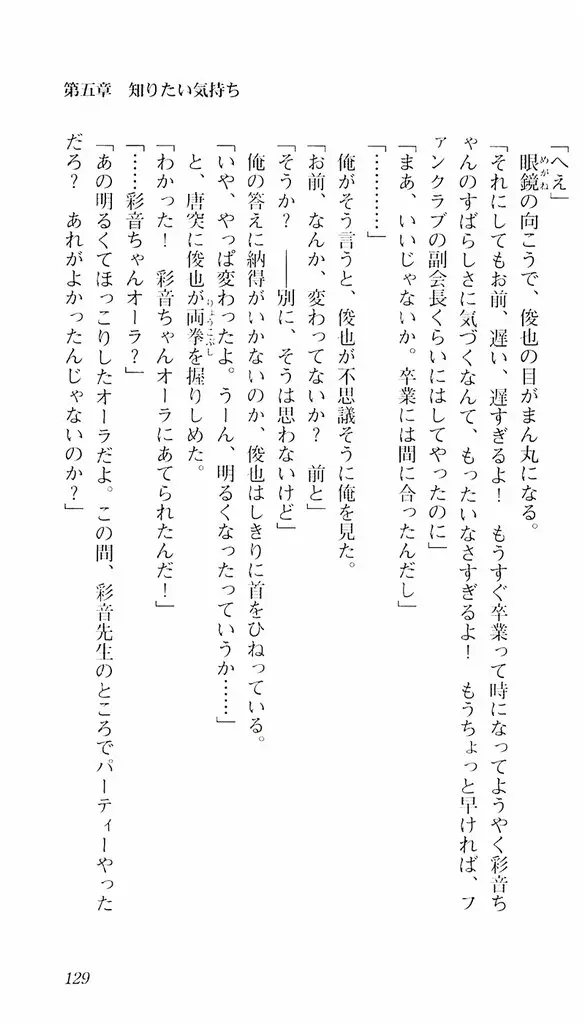 第五章　知りたい気持ち
「へえ」
眼鏡の向こうで、俊也の目がまん丸になる。
「それにしてもお前、遅い、遅すぎるよ！　もうすぐ卒業って時になってようやく彩音ち
ゃんのすばらしさに気づくなんて、もったいなさすぎるよ！　もうちょっと早ければ、フ
ァンクラブの副会長くらいにはしてやったのに」
「まあ、いいじゃないか。卒業には間に合ったんだし」
「…………」
俺がそう言うと、俊也が不思議そうに俺を見た。
「お前、なんか、変わってないか？　前と」
「そうか？　――別に、そうは思わないけど」
俺の答えに納得がいかないのか、俊也はしきりに首をひねっている。
「いや、やっぱ変わったよ。うーん、明るくなったっていうか……」
と、唐突に俊也が両拳を握りしめた。
「わかった！　彩音ちゃんオーラにあてられたんだ！」
「……彩音ちゃんオーラ？」
「あの明るくてほっこりしたオーラだよ。この間、彩音先生のところでパーティーやった
だろ？　あれがよかったんじゃないのか？」
めがね
りょうこぶし
129